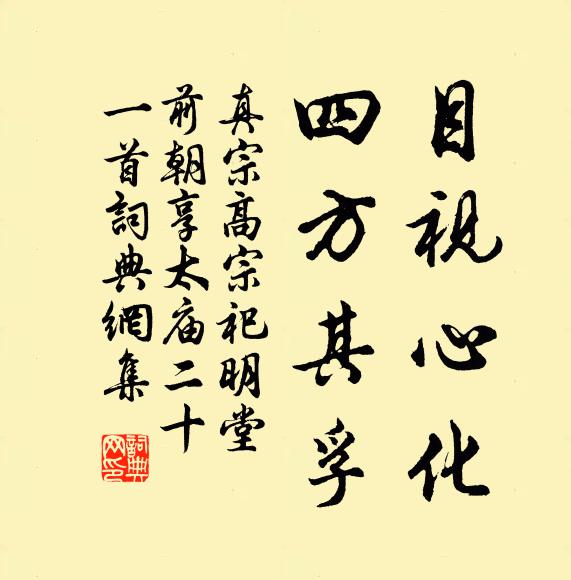 目視心化
四方其孚
真宗高宗祀明堂
前朝享太庙二十
一首詞典網集
詞典网印